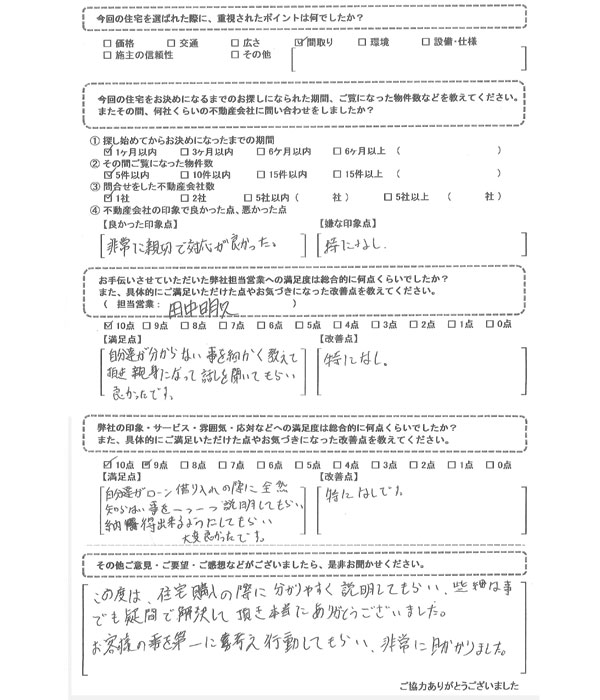 今回の住宅を選ばれた際に、重視されたポイントは何でしたか？
□ 価格 □ 交通 □ 広さ ☑ 間取り □ 環境 □ 設備・仕様
□ 施主の信頼性 □ その他
今回の住宅をお決めになるまでのお探しになられた期間、ご覧になった物件数などを教えてください。
またその間、何社くらいの不動産会社に問い合わせをしましたか？
① 探し始めてからお決めになったまでの期間
☑ 1ヶ月以内 □ 3ヶ月以内 □ 6ケ月以内 □ 6ケ月以上 （ ）
② その間ご覧になった物件数
☑ 5件以内 □ 10件以内 □ 15件以内 □ 15件以上 （ ）
③ 問合せをした不動産会社数
☑ 1社 □ 2社 □ 5社以内（ 社） □ 5社以上 （ 社）
④ 不動産会社の印象で良かった点、悪かった点
【良かった印象点】 【嫌な印象点】
非常に親切で対応が良かった。 特になし。
お手伝いさせていただいた弊社担当営業への満足度は総合的に何点くらいでしたか？
また、具体的にご満足いただけた点やお気づきになった改善点を教えてください。
（ 担当営業： 田中明久 ）
☑ 10点 □ 9点 □ 8点 □ 7点 □ 6点 □ 5点 □ 4点 □ 3点 □ 2点 □ 1点 □ 0点
【満足点】 【改善点】
自分達が分からない事を細かく教えて 特になし。
頂き親身になって話しを聞いてもらい
良かったです。
弊社の印象・サービス・雰囲気・応対などへの満足度は総合的に何点くらいでしたか？
また、具体的にご満足いただけた点やお気づきになった改善点を教えてください。
☑ 10点 ☑ 9点 □ 8点 □ 7点 □ 6点 □ 5点 □ 4点 □ 3点 □ 2点 □ 1点 □ 0点
【満足点】 【改善点】
自分達がローン借り入れの際に全然 特になしです。
知らない事を一つ一つ説明してもらい、
納得出来るようにしてもらい
大変良かったです。
その他ご意見・ご要望・ご感想などがございましたら、是非お聞かせください。
この度は、住宅購入の際に分かりやすく説明してもらい、些細な事
でも疑問で解決して頂き本当にありがとうございました。
お客様の事を第一に考え行動してもらい、非常に助かりました。
ご協力ありがとうございました